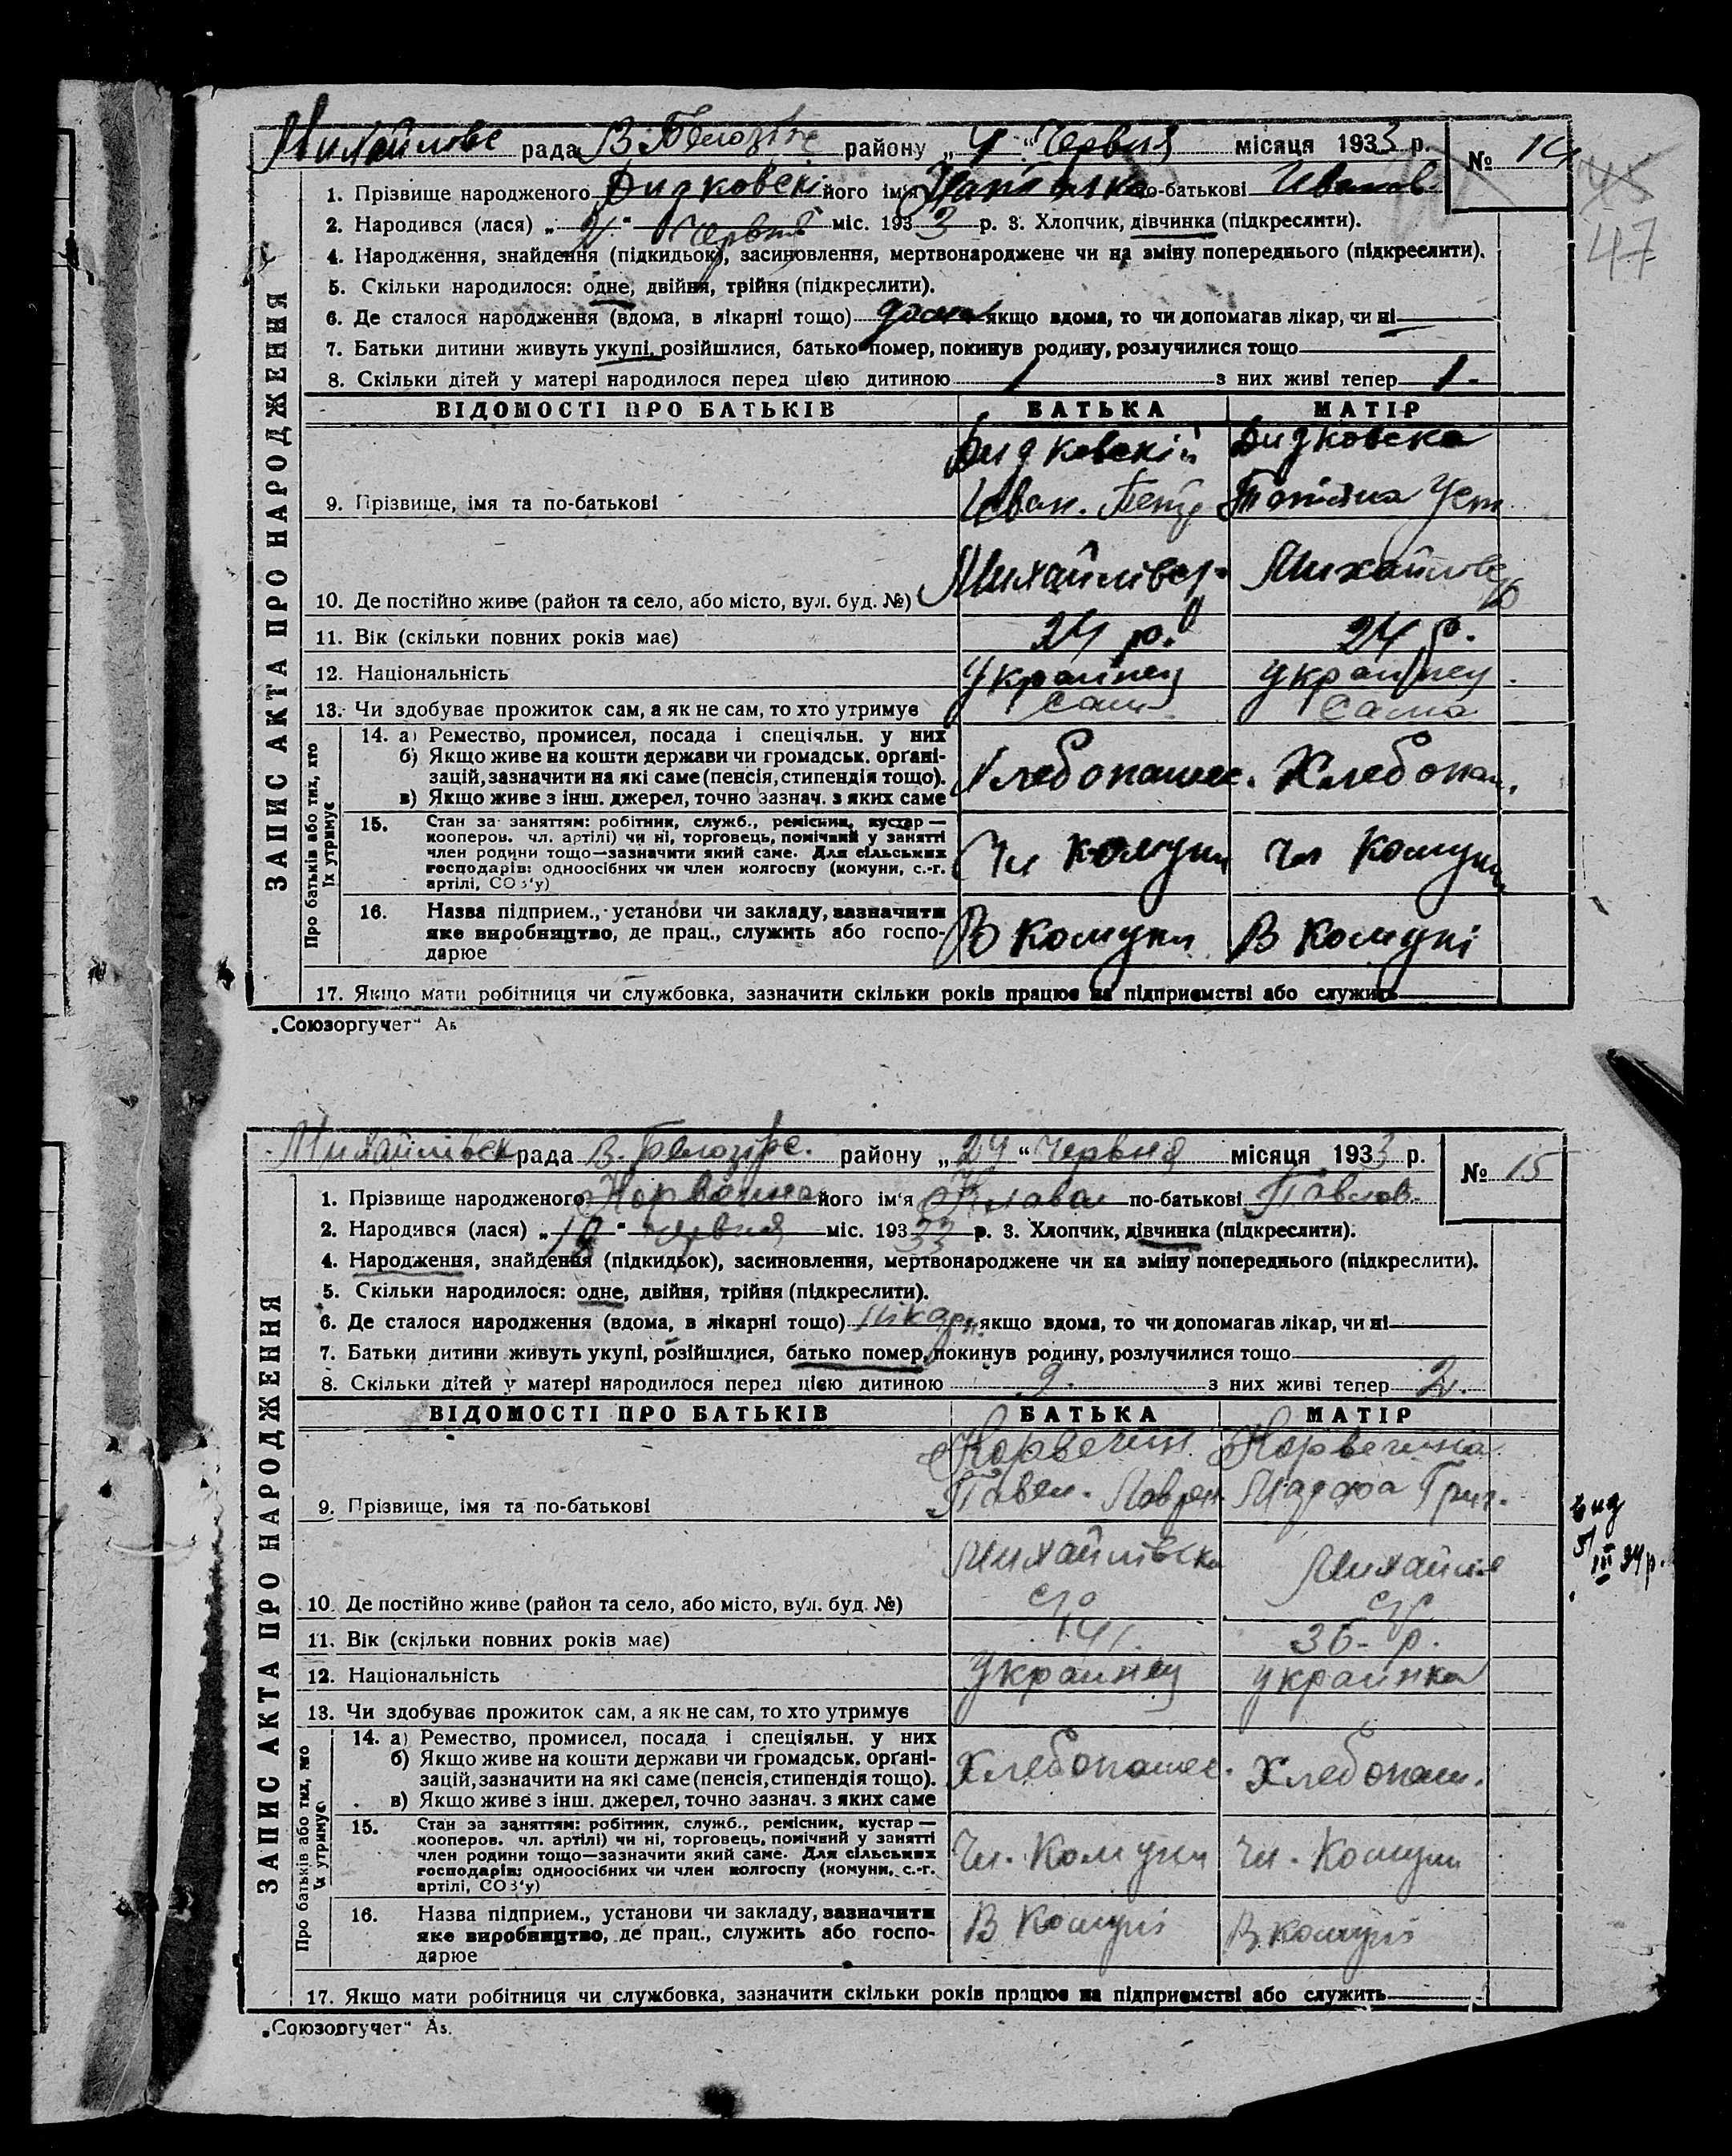 рада В. Білозірс району „4“ Червня місяця 1933 р. № 14
45
47
1. Прізвище народженого його ім'я по-батькові Иванов
2. Народився (лася) „ “ Червня міс. 1933 р. 3. Хлопчик, дівчинка (підкреслити).
4. Народження, знайдення (підкидьок), засиновлення, мертвонароджене чи на зміну попереднього (підкреслити).
5. Скільки народилося: одне, двійня, трійня (підкреслити).
6. Де сталося народження (вдома, в лікарні тощо) дома якщо вдома, то чи допомагав лікар, чи ні
7. Батьки дитини живуть укупі, розійшлися, батько помер, покинув родину, розлучилися тощо
8. Скільки дітей у матері народилося перед цією дитиною 1 з них живі тепер 1.
ЗАПИС АКТА ПРО НАРОДЖЕННЯ
ВІДОМОСТІ ПРО БАТЬКІВ БАТЬКА МАТІР
Дидковскій Дидковска
9. Прізвище, імя та по-батькові Иван. Петр Тотяна Уст
10. Де постійно живе (район та село, або місто, вул. буд. №)
11. Вік (скільки повних років має) 24 р. 24 р.
12. Національність Украинец украинец.
13. Чи здобуває прожиток сам, а як не сам, то хто утримує Сам Сама
Про батьків або тих, хто їх утримує
14. а) Ремество, промисел, посада і спеціяльн. у них
б) Якщо живе на кошти держави чи громадськ. орґані-
зацій, зазначити на які саме (пенсія, стипендія тощо). Хлебопашес. Хлебопаш.
в) Якщо живе з інш. джерел, точно зазнач. з яких саме
15. Стан за заняттям: робітник, служб., ремісник, кустар —
кооперов. чл. артілі) чи ні, торговець, помічний у занятті
член родини тощо—зазначити який саме. Для сільських Чл комуни чл комуни
господарів: одноосібних чи член колгоспу (комуни, с.-г.
артілі, СОЗ'у)
16. Назва підприєм., установи чи закладу, зазначити
яке виробництво, де прац., служить або госпо- В комуни В комуні
дарює
17. Якщо мати робітниця чи службовка, зазначити скільки років працює на підприємстві або служить
„Союзоргучет“ Аs
Михайлівск рада В. Білозірс. району „24“ Червня місяця 1933 р. № 15
1. Прізвище народженого його ім'я Клава по-батькові Павлов.
2. Народився (лася) „ “ червня міс. 19333 р. 3. Хлопчик, дівчинка (підкреслити).
4. Народження, знайдення (підкидьок), засиновлення, мертвонароджене чи на зміну попереднього (підкреслити).
5. Скільки народилося: одне, двійня, трійня (підкреслити).
6. Де сталося народження (вдома, в лікарні тощо) лікарн. якщо вдома, то чи допомагав лікар, чи ні
7. Батьки дитини живуть укупі, розійшлися, батько помер, покинув родину, розлучилися тощо
8. Скільки дітей у матері народилося перед цією дитиною 9. з них живі тепер 2.
ЗАПИС АКТА ПРО НАРОДЖЕННЯ
ВІДОМОСТІ ПРО БАТЬКІВ БАТЬКА МАТІР
9. Прізвище, імя та по-батькові Павел. Лаврен. Мадфа Григ.
Михайлівска
10. Де постійно живе (район та село, або місто, вул. буд. №)
11. Вік (скільки повних років має) 41. 36- р.
12. Національність Украинец украинка
13. Чи здобуває прожиток сам, а як не сам, то хто утримує
Про батьків або тих, хто їх утримує
14. а) Ремество, промисел, посада і спеціяльн. у них
б) Якщо живе на кошти держави чи громадськ. орґані-
зацій, зазначити на які саме (пенсія, стипендія тощо). Хлебопашес. Хлебопаш.
в) Якщо живе з інш. джерел, точно зазнач. з яких саме
15. Стан за заняттям: робітник, служб., ремісник, кустар —
кооперов. чл. артілі) чи ні, торговець, помічний у занятті
член родини тощо—зазначити який саме. Для сільських Чл. Комуни чл. Комуни
господарів: одноосібних чи член колгоспу (комуни, с.-г.
артілі, СОЗ'у)
16. Назва підприєм., установи чи закладу, зазначити
яке виробництво, де прац., служить або госпо- В Комуні В комуні
дарює
17. Якщо мати робітниця чи службовка, зазначити скільки років працює на підприємстві або служить
„Союзоргучет“ Аs.